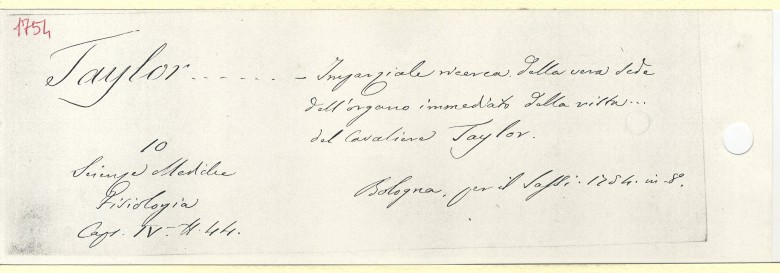 1754
Taylor . . . . . . – Imparziale ricerca della vera sede
dell'organo immediato della vista...
del Cavaliere Taylor.
10
Scienze Mediche
Fisiologia
Caps. IV – N. 44.
Bologna, per il Sassi. 1754. in-8°.